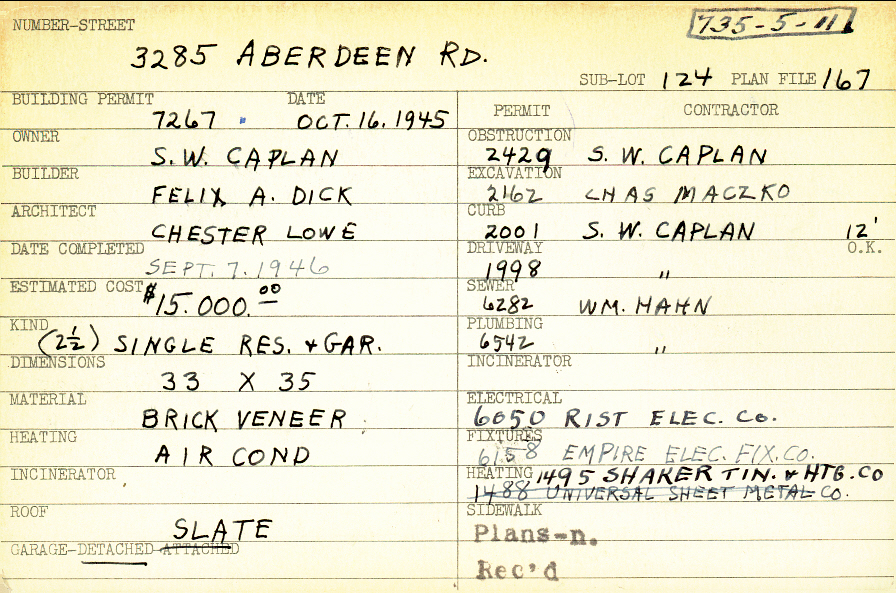 735-5-11
NUMBER-STREET
3285 ABERDEEN RD.
SUB-LOT 124 PLAN FILE 167
BUILDING PERMIT DATE
7267 OCT. 16. 1945
OWNER
S. W. CAPLAN
BUILDER
FELIX A. DICK
ARCHITECT
CHESTER LOWE
DATE COMPLETED
SEPT. 7. 1946
ESTIMATED COST
$15.000.00
KIND
(2½) SINGLE RES. & GAR.
DIMENSIONS
33 X 35
MATERIAL
BRICK VENEER
HEATING
AIR COND
INCINERATOR
ROOF
SLATE
GARAGE-DETACHED-ATTACHED
PERMIT CONTRACTOR
OBSTRUCTION
2429 S. W. CAPLAN
EXCAVATION
2162 CHAS MACZKO
CURB
2001 S. W. CAPLAN 12'
DRIVEWAY O.K.
1998 "
SEWER
6282 WM. HAHN
PLUMBING
6542 "
INCINERATOR
ELECTRICAL
6050 RIST ELEC. CO.
FIXTURES
6158 EMPIRE ELEC. FIX. CO.
HEATING 1495 SHAKER TIN. & HTG. CO
1488 UNIVERSAL SHEET METAL CO.
SIDEWALK
Plans-n.
Rec'd